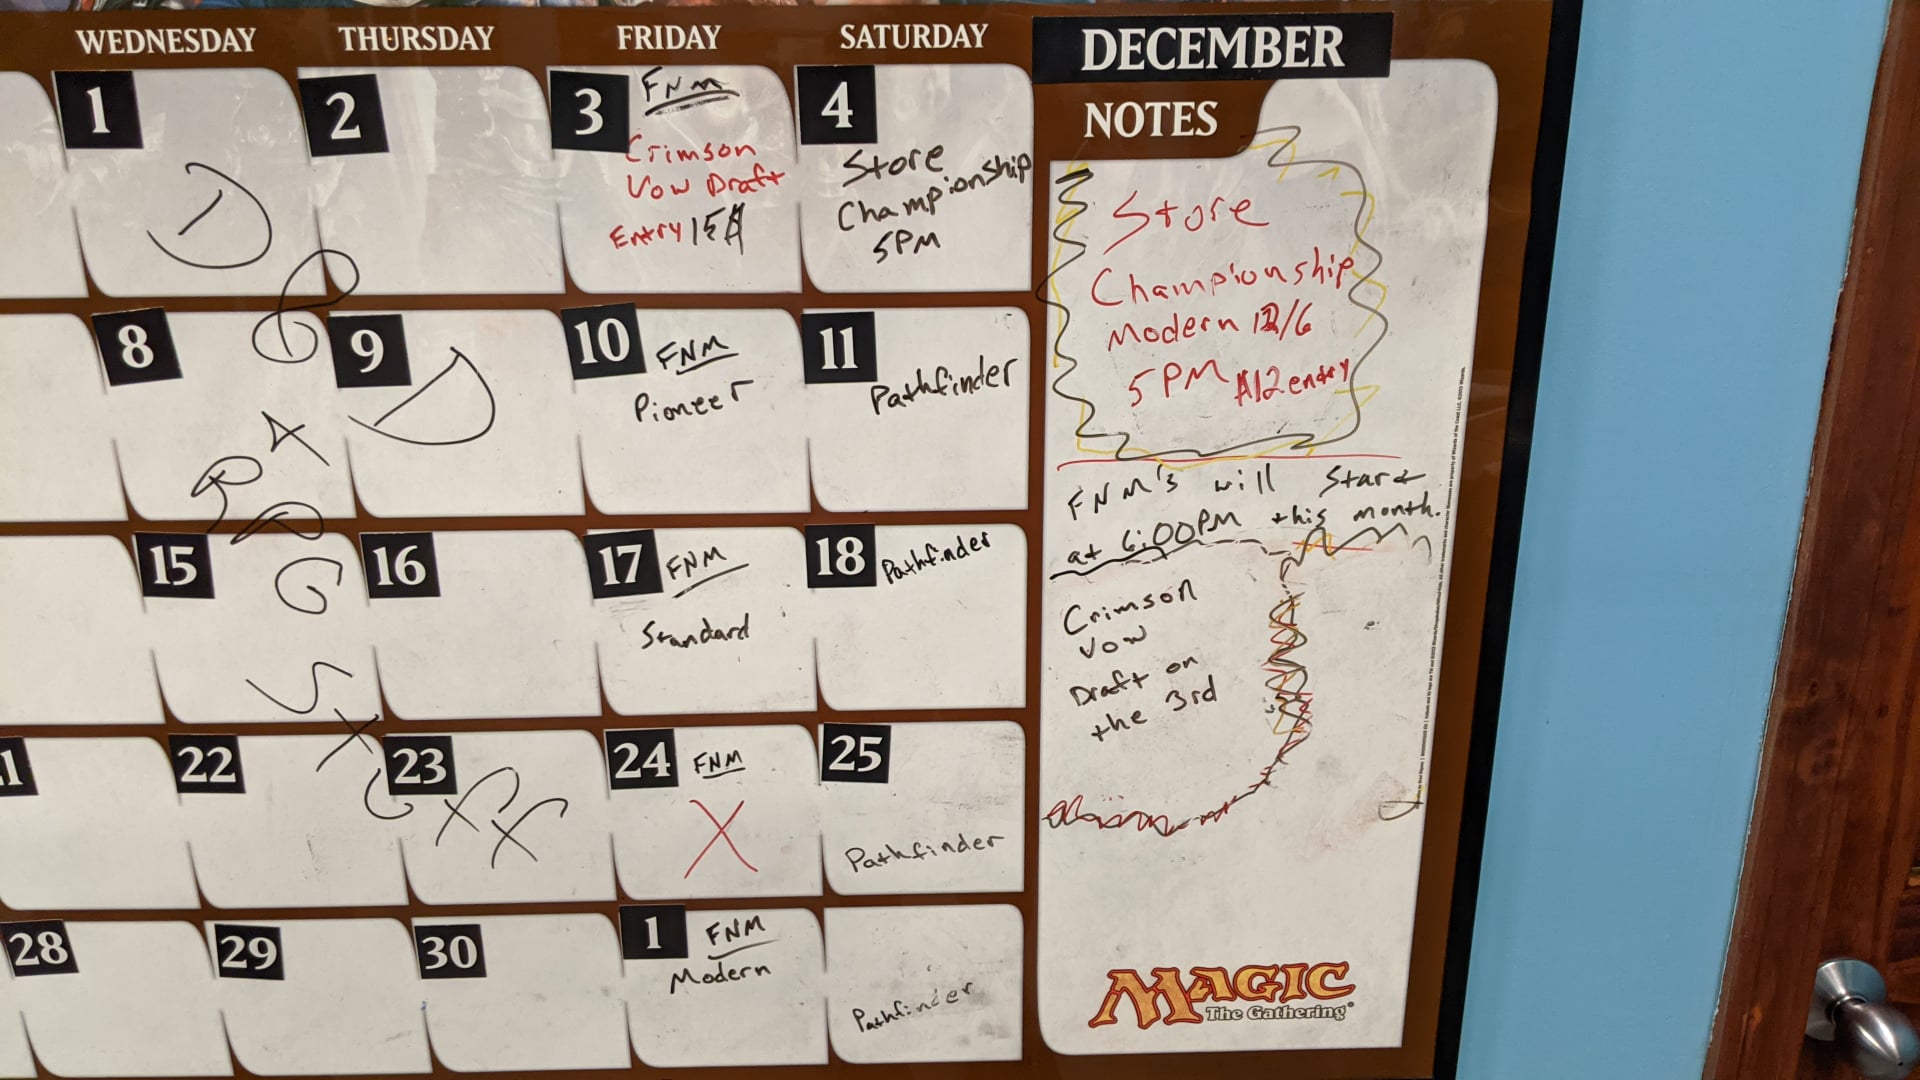 WEDNESDAY THURSDAY FRIDAY SATURDAY
DECEMBER
NOTES
1
2
3 FNM
Crimson
Vow Draft
Entry 15$
4
Store
Championship
5PM
8
9
10 FNM
Pioneer
11
Pathfinder
15
16
17 FNM
Standard
18 Pathfinder
22
23
24 FNM
X
25
Pathfinder
28
29
30
1 FNM
Modern
Pathfinder
D
&
D
RPG
Stuff
Store
Championship
Modern 12/6
5PM $12 entry
FNM's will start
at 6:00PM this month.
Crimson
Vow
Draft on
the 3rd
MAGIC
The Gathering®